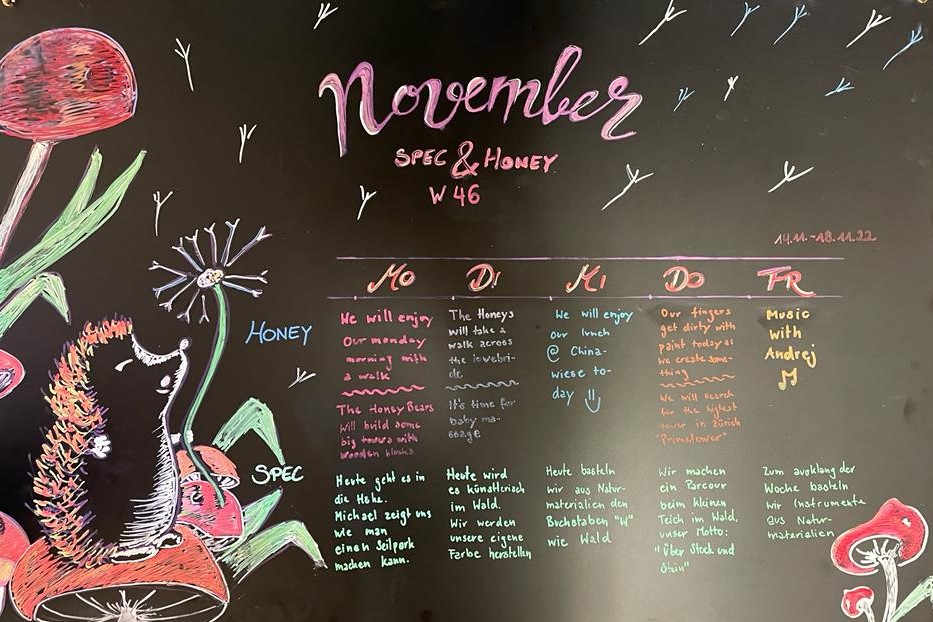 November
SPEC & HONEY
W 46
14.11.-18.11.22
MO DI MI DO FR
HONEY
We will enjoy
our monday
morning with
a walk
The HoneyBears
will build some
big towers with
wooden blocks
The Honeys
will take a
walk across
the
It's time for
baby ma-
ssage
We will enjoy
our lunch
@ China-
wiese to-
day !!
Our fingers
get dirty with
paint today as
we create some-
thing
We will search
for the highest
tower in Zürich
"Primetower"
Music
with
Andrej
SPEC
Heute geht es in
die Höhe.
Michael zeigt uns
wie man
einen Seilpark
machen kann.
Heute wird
es künstlerisch
im Wald.
Wir werden
unsere eigene
Farbe herstellen
Heute basteln
wir aus Natur-
materialien den
Buchstaben "W"
wie Wald
Wir machen
ein Parcour
beim kleinen
Teich im Wald,
unser Motto:
"Über Stock und
Stein"
Zum ausklang der
Woche basteln
wir Instrumente
aus Natur-
materialien